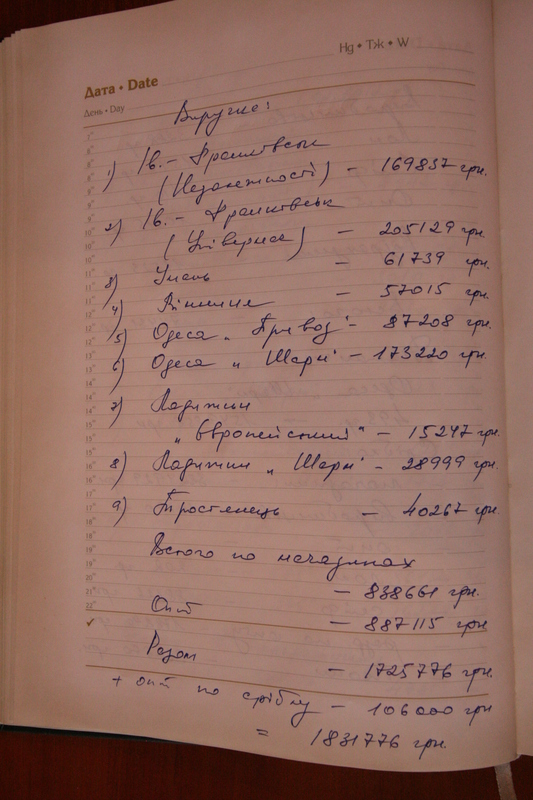 Hд • Тж • W
Дата • Date
День • Day
Виручка:
1) Ів. - Франківськ
(Незалежності) - 169837 грн.
2) Ів. - Франківськ
(Універмаг) - 205129 грн.
3) Умань - 61739 грн.
4) Вінниця - 57015 грн.
5) Одеса „Привоз" - 87208 грн.
6) Одеса „Шарм" - 173220 грн.
7) Ладижин
„Європейський" - 15247 грн.
8) Ладижин „Шарм" - 28999 грн.
9) Тростянець - 40267 грн.
Всього по магазинах
- 838661 грн.
Опт
- 887115 грн.
Разом
- 1725776 грн.
+ опт по сріблу - 106000 грн
= 1831776 грн.